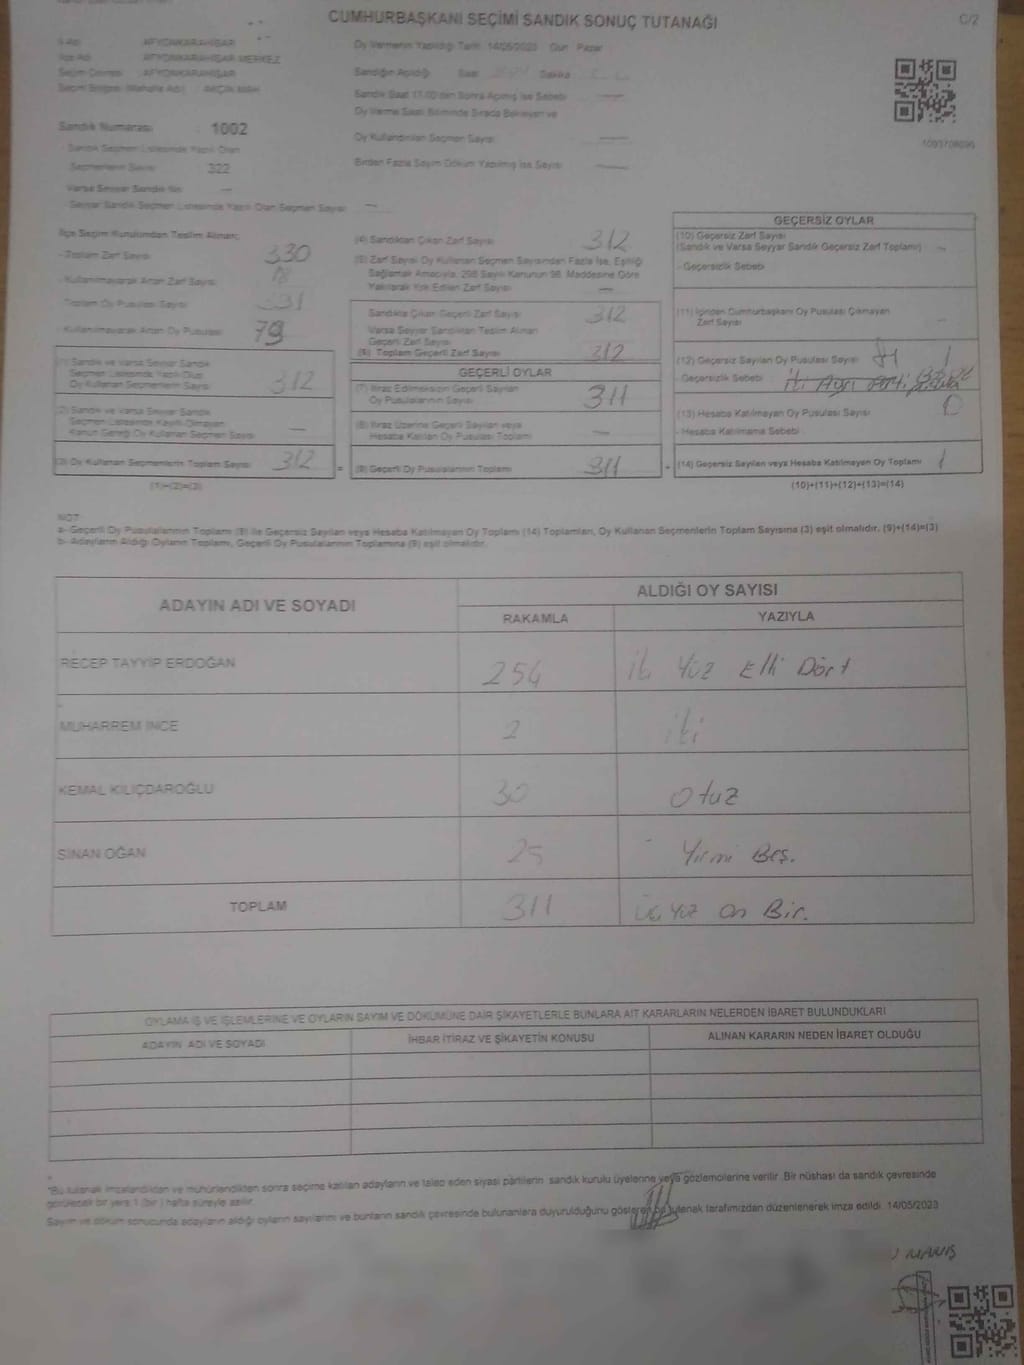 CUMHURBAŞKANI SEÇİMİ SANDIK SONUÇ TUTANAĞI
C/2
İl Adı : AFYONKARAHİSAR
İlçe Adı : AFYONKARAHİSAR MERKEZ
Seçim Çevresi : AFYONKARAHİSAR
Seçim Bölgesi (Mahalle Adı)
Sandık Numarası : 1002
Sandık Seçmen Listesinde Yazılı Olan
Seçmenlerin Sayısı : 322
Varsa Seyyar Sandık No : —
Seyyar Sandık Seçmen Listesinde Yazılı Olan Seçmen Sayısı : —
Oy Vermenin Yapıldığı Tarih : 14/05/2023 Gün : Pazar
Sandığın Açıldığı Saat Dakika
Sandık Saat 17.00'den Sonra Açılmış İse Sebebi —
Oy Verme Saati Bitiminde Sırada Bekleyen ve
Oy Kullandırılan Seçmen Sayısı —
Birden Fazla Sayım Döküm Yapılmış İse Sayısı —
1093708095
İlçe Seçim Kurulundan Teslim Alınan;
- Toplam Zarf Sayısı 330
- Kullanılmayarak Artan Zarf Sayısı 18
- Toplam Oy Pusulası Sayısı
- Kullanılmayarak Artan Oy Pusulası
(1) Sandık ve Varsa Seyyar Sandık
Seçmen Listesinde Yazılı Olup
Oy Kullanan Seçmenlerin Sayısı 312
(2) Sandık ve Varsa Seyyar Sandık
Seçmen Listesinde Kayıtlı Olmayan
Kanun Gereği Oy Kullanan Seçmen Sayısı —
(3) Oy Kullanan Seçmenlerin Toplam Sayısı 312
(1)+(2)=(3)
(4) Sandıktan Çıkan Zarf Sayısı 312
(5) Zarf Sayısı Oy Kullanan Seçmen Sayısından Fazla İse, Eşitliği
Sağlamak Amacıyla, 298 Sayılı Kanunun 98. Maddesine Göre
Yakılarak Yok Edilen Zarf Sayısı —
Sandıkta Çıkan Geçerli Zarf Sayısı 312
Varsa Seyyar Sandıktan Teslim Alınan
Geçerli Zarf Sayısı
(6) Toplam Geçerli Zarf Sayısı 312
GEÇERLİ OYLAR
(7) İtiraz Edilmeksizin Geçerli Sayılan
Oy Pusulalarının Sayısı 311
(8) İtiraz Üzerine Geçerli Sayılan veya
Hesaba Katılan Oy Pusulası Toplamı —
= (9) Geçerli Oy Pusulalarının Toplamı 311
GEÇERSİZ OYLAR
(10) Geçersiz Zarf Sayısı
(Sandık ve Varsa Seyyar Sandık Geçersiz Zarf Toplamı) —
- Geçersizlik Sebebi
(11) İçinden Cumhurbaşkanı Oy Pusulası Çıkmayan
Zarf Sayısı —
(12) Geçersiz Sayılan Oy Pusulası Sayısı 1
- Geçersizlik Sebebi : İki Ayrı
(13) Hesaba Katılmayan Oy Pusulası Sayısı 0
- Hesaba Katılmama Sebebi
+ (14) Geçersiz Sayılan veya Hesaba Katılmayan Oy Toplamı 1
(10)+(11)+(12)+(13)=(14)
NOT:
a- Geçerli Oy Pusulalarının Toplamı (9) ile Geçersiz Sayılan veya Hesaba Katılmayan Oy Toplamı (14) Toplamları, Oy Kullanan Seçmenlerin Toplam Sayısına (3) eşit olmalıdır. (9)+(14)=(3)
b- Adayların Aldığı Oyların Toplamı, Geçerli Oy Pusulalarının Toplamına (9) eşit olmalıdır.
ADAYIN ADI VE SOYADI
ALDIĞI OY SAYISI
RAKAMLA YAZIYLA
RECEP TAYYİP ERDOĞAN 254 iki Yüz Elli Dört
MUHARREM İNCE 2 iki
KEMAL KILIÇDAROĞLU 30 Otuz
SİNAN OĞAN 25 Yirmi Beş.
TOPLAM 311 Üç Yüz On Bir.
OYLAMA İŞ VE İŞLEMLERİNE VE OYLARIN SAYIM VE DÖKÜMÜNE DAİR ŞİKAYETLERLE BUNLARA AİT KARARLARIN NELERDEN İBARET BULUNDUKLARI
ADAYIN ADI VE SOYADI İHBAR İTİRAZ VE ŞİKAYETİN KONUSU ALINAN KARARIN NEDEN İBARET OLDUĞU
*Bu tutanak imzalandıktan ve mühürlendikten sonra seçime katılan adayların ve talep eden siyasi partilerin sandık kurulu üyelerine veya gözlemcilerine verilir. Bir nüshası da sandık çevresinde
görülecek bir yere 1 (bir) hafta süreyle asılır.
Sayım ve döküm sonucunda adayların aldığı oyların sayılarını ve bunların sandık çevresinde bulunanlara duyurulduğunu gösteren bu tutanak tarafımızdan düzenlenerek imza edildi. 14/05/2023
MANIŞ